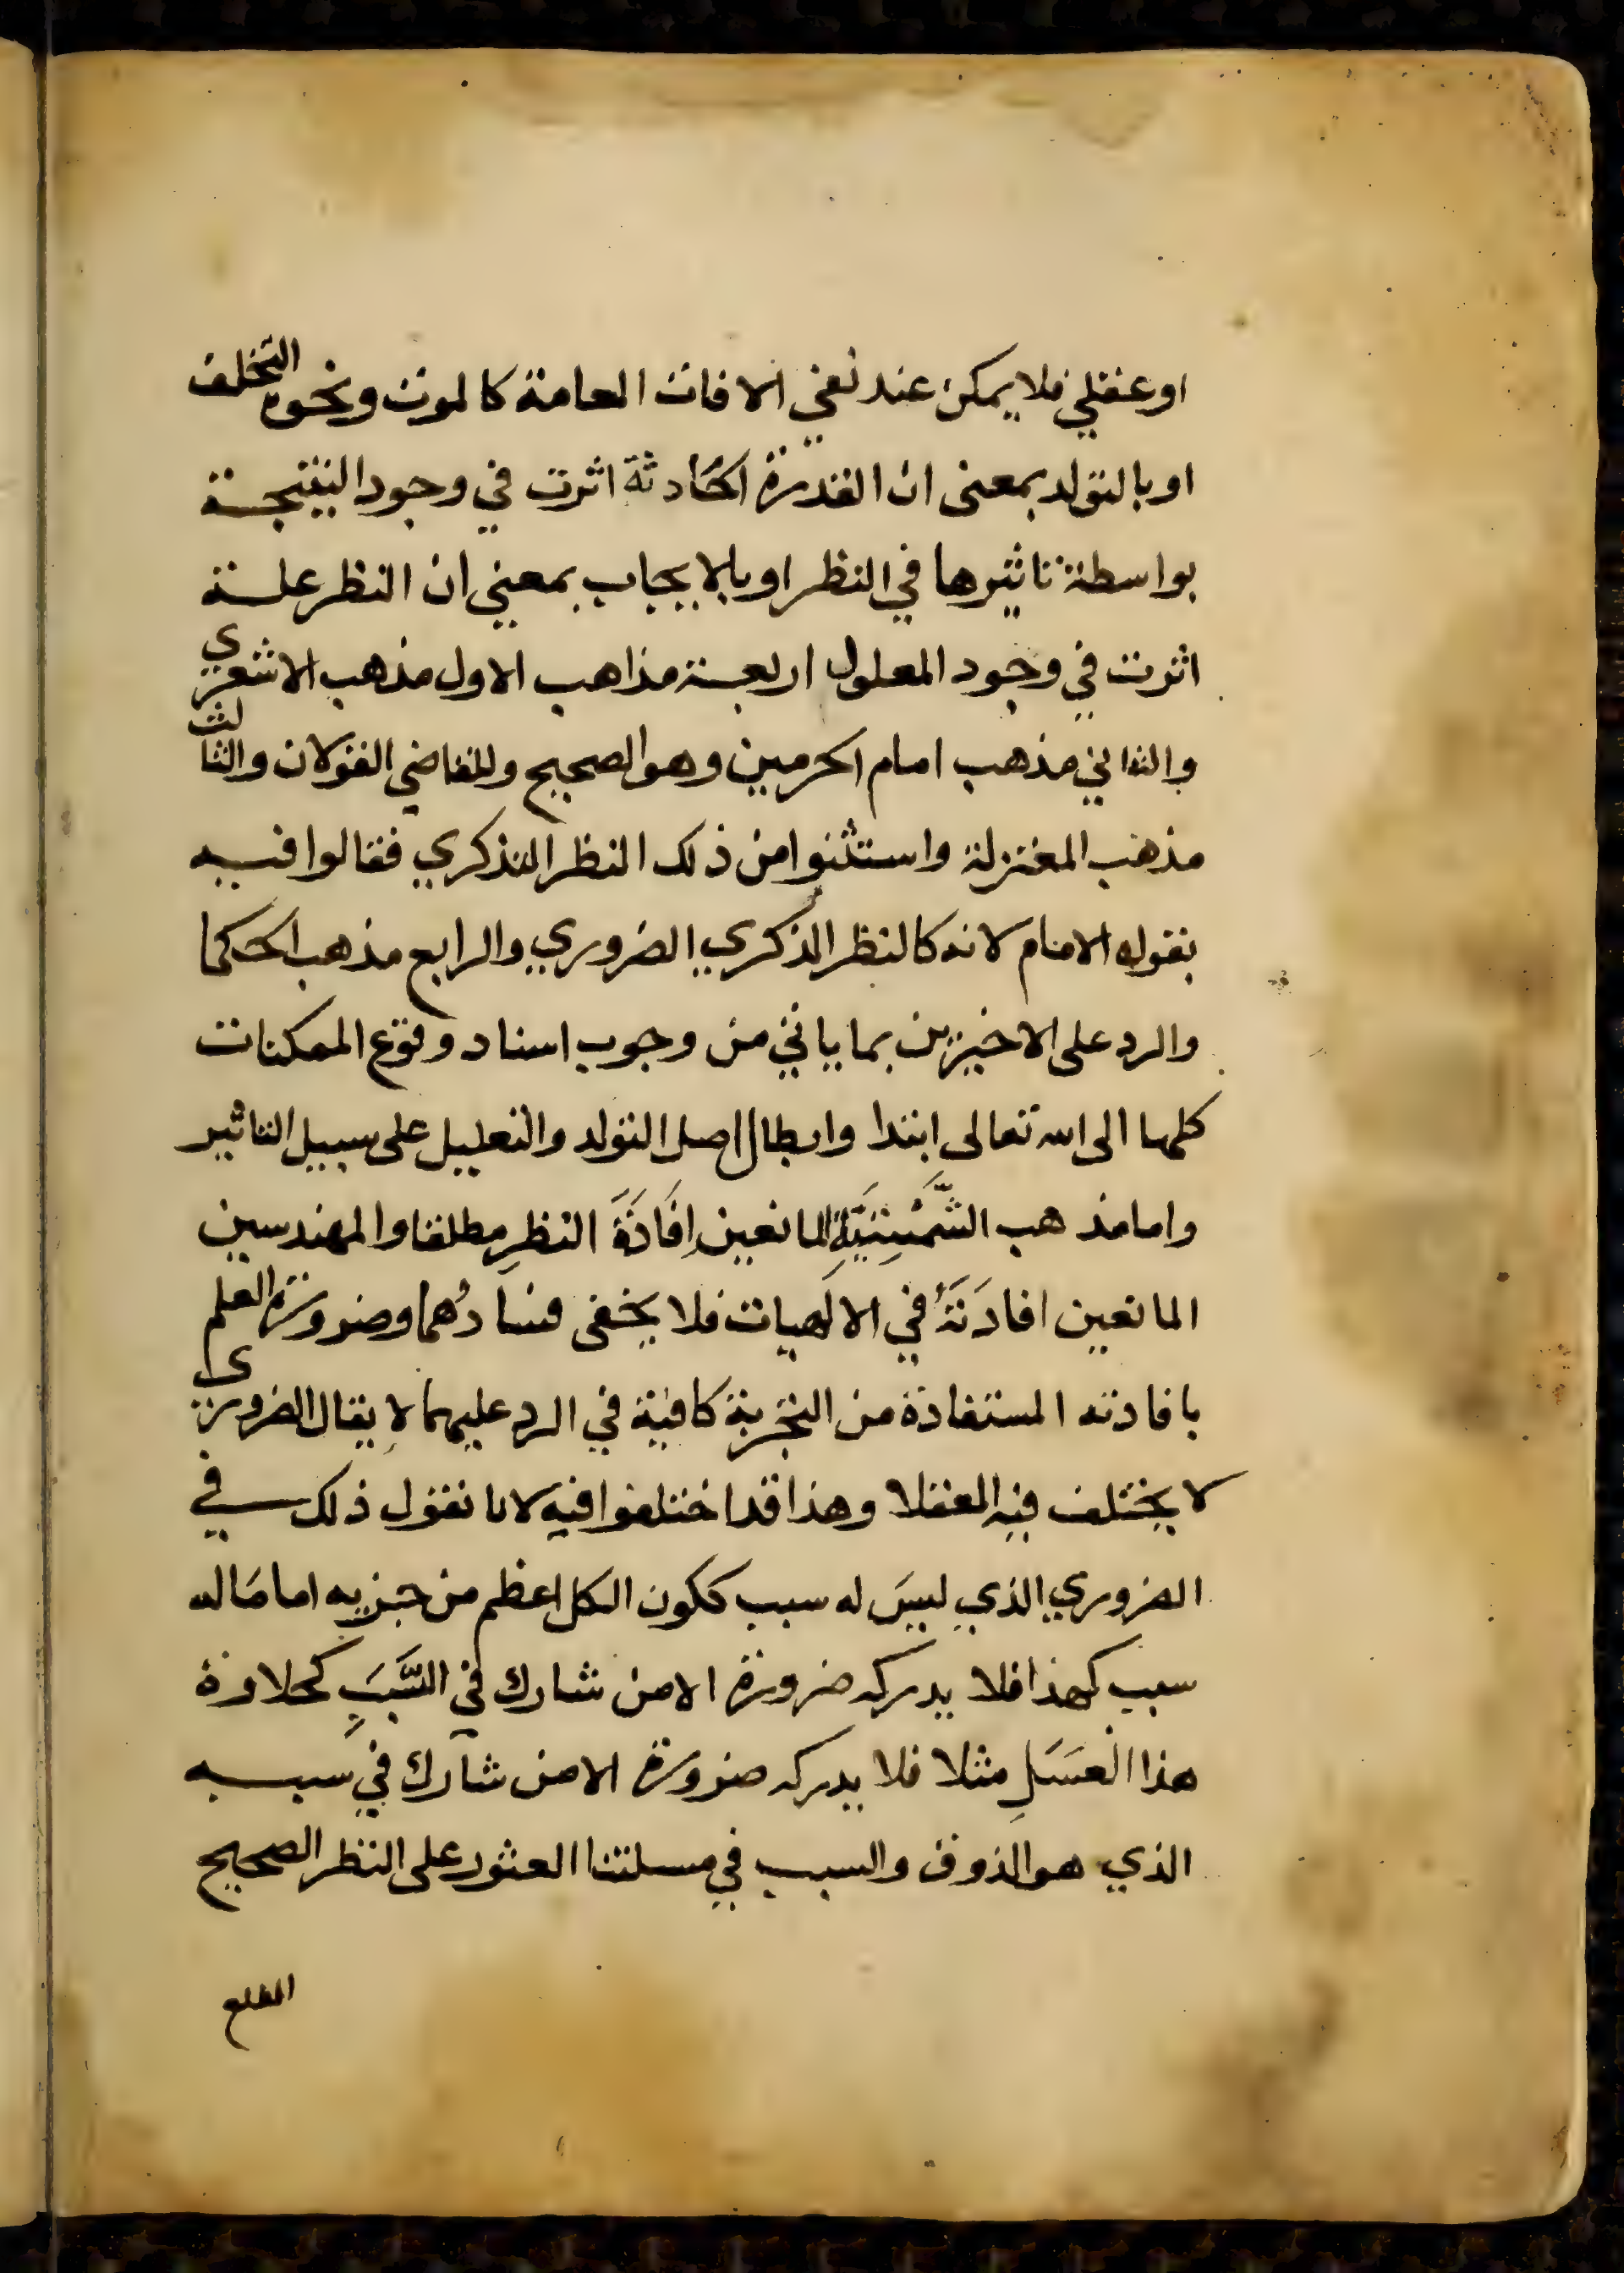 او عقلي فلا يمكن عند نفي الافات العامة كالموت ونحوه التخلف
او بالتولد بمعنى ان القدرة الحادثة اثرت في وجود النتيجة
بواسطة تاثيرها في النظر او بالايجاب بمعني ان النظر علة
اثرت في وجود المعلول اربعة مذاهب الاول مذهب الاشعري
والثاني مذهب امام الحرمين وهو الصحيح وللقاضي القولان والثالث
مذهب المعتزلة واستثنوا من ذلك النظر التذكري فقالوا فيه
بقوله الامام لانه كالنظر الذكري الضروري والرابع مذهب الحكما
والرد على الاخيرين بما ياتي من وجوب اسناد وقوع الممكنات
كلها الى الله تعالى ابتدا وابطال اصل التولد والتعليل على سبيل التاثير
واما مذهب الشَّمَنِيَّةِ المانعين اِفَادَةَ النظرِ مطلقا والمهندسين
المانعين افادَتَهُ في الالهيات فلا يخفى فسادُهما وضرورة العلم
بافادته المستفادة من التجربة كافية في الرد عليهما لا يقال الضروري
لا يختلف فيه العقلا وهذا قد اختلفوا فيه لانا نقول ذلك في
الضروري الذي ليسَ له سبب ككون الكل اعظم من جزيه اما مَا له
سبب كهذا فلا يدركه ضرورة الا من شارك في السَّبَبِ كحلاوة
هذا الْعَسَلِ مثلا فلا يدركه ضرورة الا من شارك في سببه
الذي هو الذوق والسبب في مسلتنا العثور على النظر الصحيح
المطلع